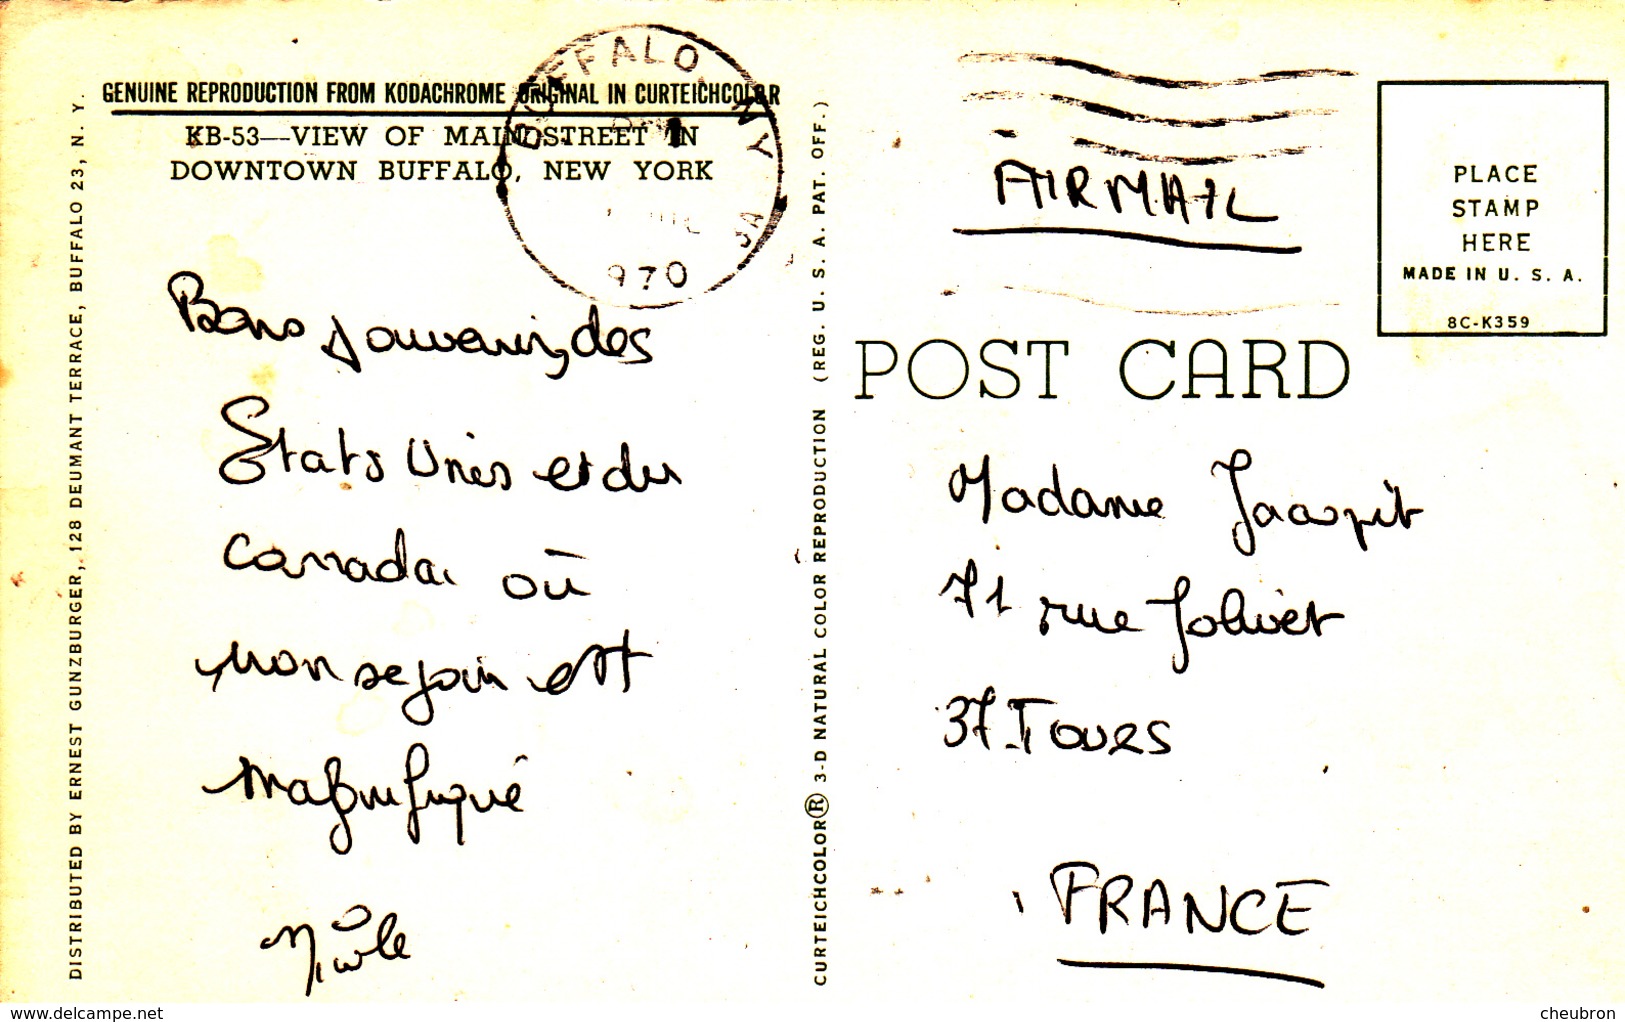 GENUINE REPRODUCTION FROM KODACHROME ORIGINAL IN CURTEICHCOLOR
KB-53—VIEW OF MAIN STREET IN
DOWNTOWN BUFFALO, NEW YORK
BUFFALO, NY
970
Bons souvenirs des
États Unis et du
Canada où
mon sejour est
magnifique
Nicole
DISTRIBUTED BY ERNEST GUNZBURGER, 128 DEUMANT TERRACE, BUFFALO 23, N. Y.
CURTEICHCOLOR® 3-D NATURAL COLOR REPRODUCTION (REG. U. S. A. PAT. OFF.)
AIRMAIL
PLACE
STAMP
HERE
MADE IN U. S. A.
8C-K359
POST CARD
Madame
71 rue Jolivet
37 Tours
FRANCE
delcampe.net
cheubron